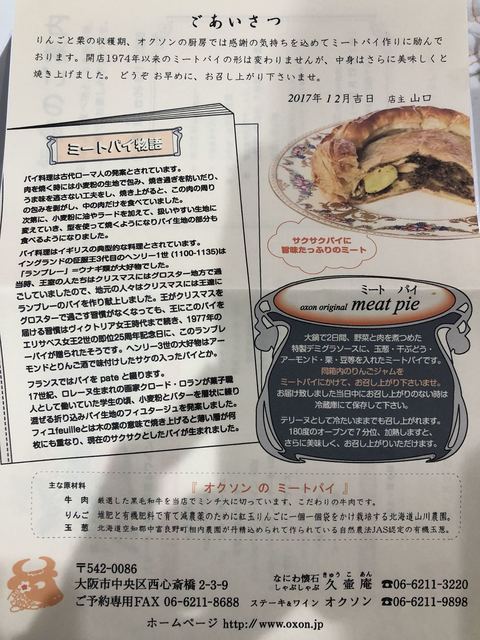 ごあいさつ
りんごと栗の収穫期、オクソンの厨房では感謝の気持ちを込めてミートパイ作りに励んで
おります。開店1974年以来のミートパイの形は変わりませんが、中身はさらに美味しくと
焼き上げました。どうぞ お早めに、お召し上がり下さいませ。
2017年 12月吉日 店主 山口
ミートパイ物語
パイ料理は古代ローマ人の発案とされています。
肉を焼く時には小麦粉の生地で包み、焼き過ぎを防いだり、
うま味を逃さない工夫をし、焼き上がると、この肉の周り
の包みを剥がし、中の肉だけを食べていました。
次第に、小麦粉に油やラードを加えて、扱いやすい生地に
変えていき、型を使って焼くようになりパイ生地の部分も
食べるようになりました。
パイ料理はイギリスの典型的な料理とされています。
イングランドの征服王3代目のヘンリー1世 (1100-1135)は
「ランプレー」=ウナギ類が大好物でした。
当時、王室の人たちはクリスマスにはグロスター地方で過
ごしていましたので、地元の人々はクリスマスには王室に
ランプレーのパイを作り献上しました。王がクリスマスを
グロスターで過ごす習慣がなくなっても、王にこのパイを
届ける習慣はヴィクトリア女王時代まで続き、1977年の
エリサベス女王2世の即位25周年記念日に、このランプレ
ーパイが贈られたそうです。ヘンリー3世の大好物はアー
モンドとりんご酒で味付けしたサケの入ったパイとか。
フランスではパイを pate と綴ります。
17世紀、ロレーヌ生まれの画家クロード・ロランが菓子職
人として働いていた学生の頃、小麦粉とバターを層状に練り
混ぜる折り込みパイ生地のフィユタージュを発案しました。
フィユfeuilleとは木の葉の意味で焼き上げると薄い層が何
枚にも重なり、現在のサクサクとしたパイが生まれました。
サクサクパイに
旨味たっぷりのミート
ミート パイ
oxon original meat pie
大鍋で2日間、野菜と肉を煮つめた
特製デミグラソースに、玉葱・干ぶどう・
アーモンド・栗・豆等を入れたミートパイです。
同箱内のりんごジャムを
ミートパイにかけて、お召し上がり下さいませ。
お届け致しました当日中にお召し上がりのない時は
冷蔵庫にて保存して下さい。
テリーヌとして冷たいままでも召し上がれます。
180度のオーブンで7分位、加熱しますと、
さらに美味しく、お召し上りいただけます。
主な原材料
『 オクソン の ミートパイ 』
牛 肉 厳選した黒毛和牛を当店でミンチ大に切っています、こだわりの牛肉です。
りんご 堆肥と有機肥料で育て減農薬のために紅玉りんごに一個一個袋をかけ栽培する北海道山川農園。
玉 葱 北海道空知郡中富良野町相内農園が丹精込められて作られている自然農法JAS認定の有機玉葱。
〒542-0086
大阪市中央区西心斎橋 2-3-9
ご予約専用FAX 06-6211-8688
なにわ懐石
しゃぶしゃぶ 久壺庵 ☎06-6211-3220
きゅう こ あん
ステーキ&ワイン オクソン ☎06-6211-9898
ホームページ http://www.oxon.jp